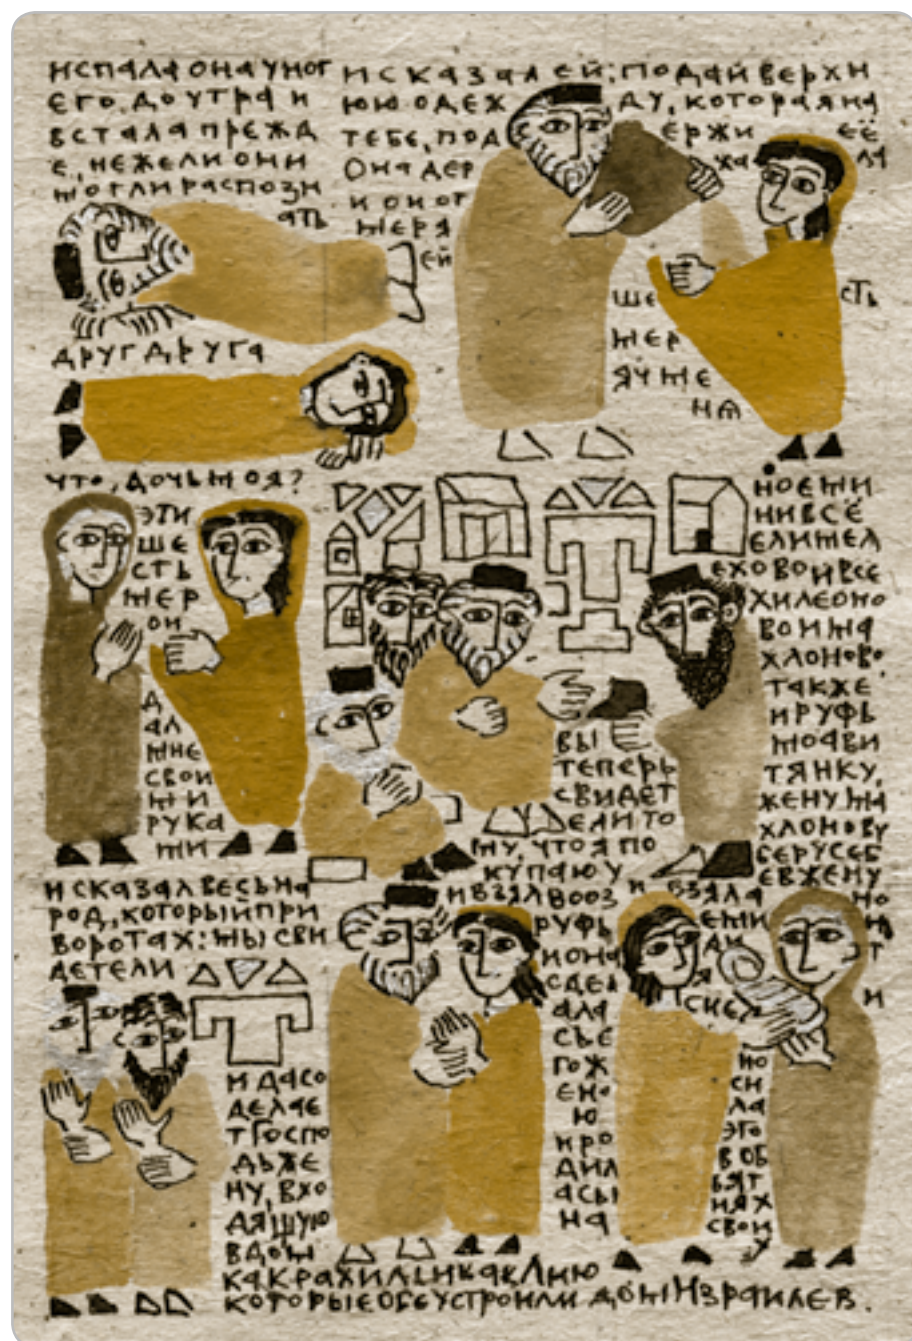 И СПАЛА ОНА У НОГ
ЕГО ДО УТРА И
ВСТАЛА ПРЕЖД
Е, НЕЖЕЛИ ОНИ
МОГЛИ РАСПОЗН
АТЬ
ДРУГ ДРУГА
И СКАЗАЛ ЕЙ: ПОДАЙ ВЕРХН
ЮЮ ОДЕЖ ДУ, КОТОРАЯ НА
ТЕБЕ, ПОД ЕРЖИ ЕЁ
ОНА ДЕР ЖА ЛА
И ОН ОТ
МЕРЯ
ЕЙ
ШЕ СТЬ
МЕР
ЯЧМЕ
НЯ
ЧТО, ДОЧЬ МОЯ?
ЭТИ
ШЕ
СТЬ
МЕР
ОН
Д
АЛ
МНЕ
СВОИ
МИ
РУКА
МИ
ВЫ
ТЕПЕРЬ
СВИДЕТ
ЕЛИ ТО
МУ, ЧТО Я ПО
КУПАЮ У
НОЕМИ
НИ ВСЁ
ЕЛИМЕЛ
ЕХОВО И ВСЕ
ХИЛЕОНО
ВО И МА
ХЛОНОВО.
ТАКЖЕ
И РУФЬ
МОАВИ
ТЯНКУ,
ЖЕНУ МА
ХЛОНОВУ
БЕРУ СЕБ
Е В ЖЕНУ
И СКАЗАЛ ВЕСЬ НА
РОД, КОТОРЫЙ ПРИ
ВОРОТАХ: МЫ СВИ
ДЕТЕЛИ
И ДА СО
ДЕЛАЕ
Т ГОСПО
ДЬ ЖЕ
НУ, ВХО
ДЯЩУЮ
В ДОМ
КАК РАХИЛЬ И КАК ЛИЮ
КОТОРЫЕ ОБЕ УСТРОИЛИ ДОМ ИЗРАИЛЕВ.
И ВЗЯЛ ВООЗ
РУФЬ
И ОНА
СДЕЛ
АЛА
СЬ Е
ГО Ж
ЕНО
Ю
И РО
ДИЛ
А СЫ
НА
И ВЗЯЛА НО
ЕМИ
НО
СИ
ЛА
ЕГО
В ОБ
ЪЯТ
ИЯХ
СВОИ